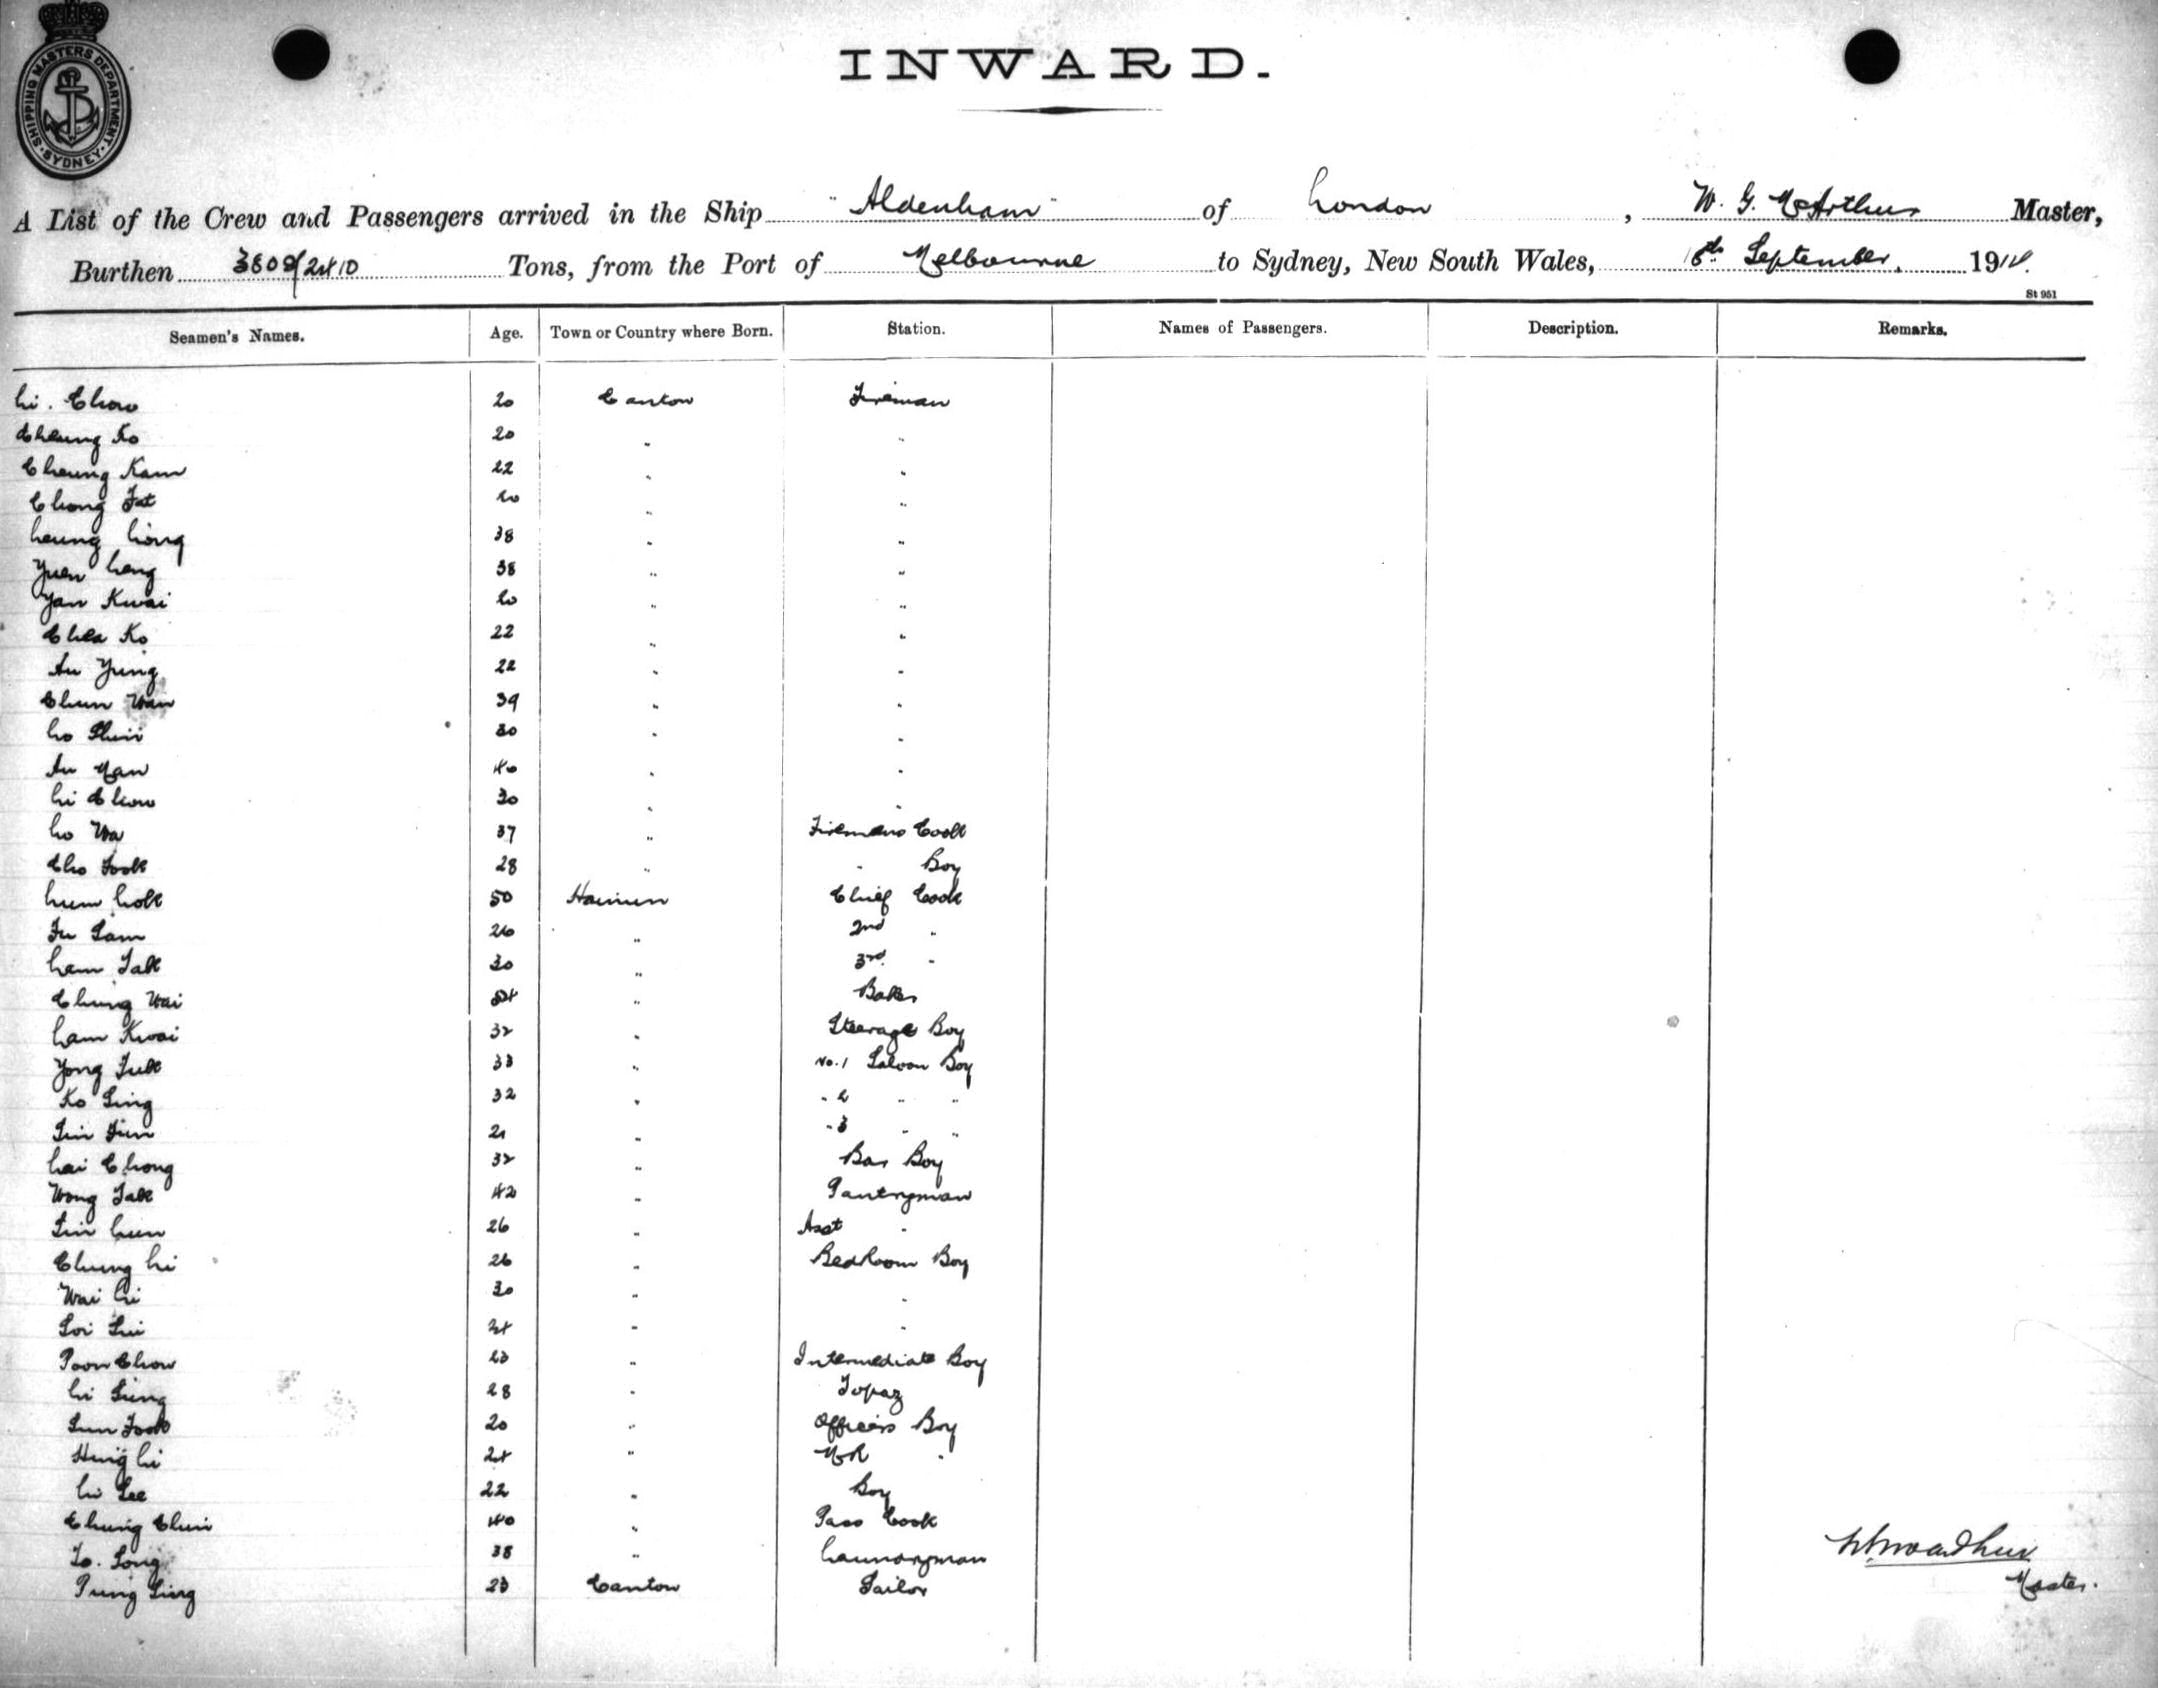 SHIPPING MASTERS DEPARTMENT. SYDNEY.
INWARD.
A List of the Crew and Passengers arrived in the Ship "Aldenham" of London, W. G. McArthur Master,
Burthen 3808/2410 Tons, from the Port of Melbourne to Sydney, New South Wales, September 191
St 951
Seamen's Names. Age. Town or Country where Born. Station. Names of Passengers. Description. Remarks.
Li. Chow 20 Canton Fireman
Cheung Ko 20 " "
Cheung Kam 22 " "
Chong Fat 20 " "
Leung Liong 38 " "
Yuen Leng 38 " "
Yan Kwai 20 " "
Chea Ko 22 " "
Au Yung 22 " "
Chun Wan 39 " "
Lo Shui 30 " "
Au Man 40 " "
Li Chow 30 " "
Lo Wa 37 " Firemens Cook
Cho Fook 28 " " Boy
Lum Lok 50 Hainan Chief Cook
Fu Sam 26 " 2nd "
Lam Tak 30 " 3rd "
Chung Wai " Baker
Lam Kwai 32 " Steerage Boy
Yong Fuk 33 " No. 1 Saloon Boy
Ko Sing 32 " " 2 " "
Lin Fun 21 " " 3 " "
Lai Chong 32 " Bar Boy
Wong Tak 42 " Pantryman
Lin Lun 26 " Asst "
Chung Li 26 " BedRoom Boy
Wai Li 30 " "
Loi Sui 24 " "
Poon Chow 23 " Intermediate Boy
Li Sung 28 " Topaz
Sun Fook 20 " Officers Boy
Hung Li 24 " MR "
Li See 22 " Boy
Chung Chui 40 " Pass Cook
To. Song 38 " Laundryman
Pung Sing 23 Canton Tailor
W. G. McArthur
Master.